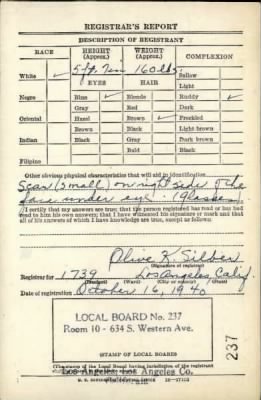 REGISTRAR'S REPORT
DESCRIPTION OF REGISTRANT
RACE HEIGHT (Approx.) WEIGHT (Approx.) COMPLEXION
White ✓ 5 ft. Ten 160 lbs Sallow
EYES HAIR Light
Negro Blue ✓ Blonde Ruddy ✓
Gray Red Dark
Oriental Hazel Brown ✓ Freckled
Brown Black Light brown
Indian Black Gray Dark brown
Bald Black
Filipino
Other obvious physical characteristics that will aid in identification
Scar (small) on right side of the
face under eye. (Glasses)
I certify that my answers are true; that the person registered has read or has had
read to him his own answers; that I have witnessed his signature or mark and that
all of his answers of which I have knowledge are true, except as follows:
Olive K. Silber
(Signature of registrar)
Registrar for 1739 Los Angeles, Calif
(Precinct) (Ward) (City or county) (State)
Date of registration October 16, 1940
LOCAL BOARD No. 237
Room 10 - 634 S. Western Ave.
(STAMP OF LOCAL BOARD)
237
Los Angeles, Los Angeles Co.